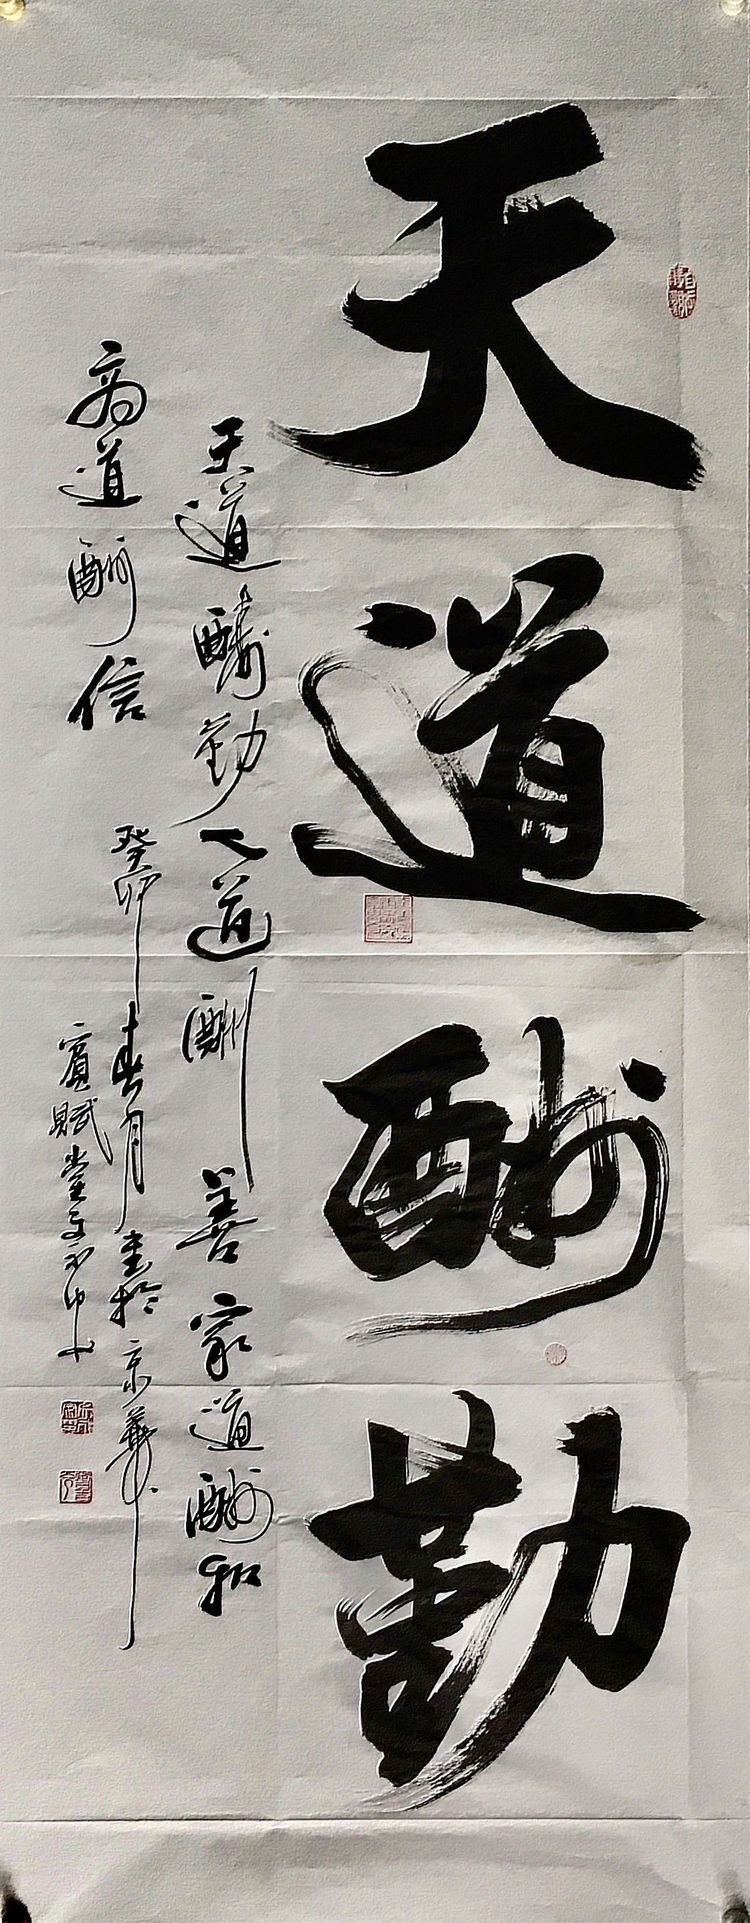 天道酬勤
天道酬勤人道酬善家道酬和
商道酬信
癸卯春月書於京華
賓賦堂文永中书